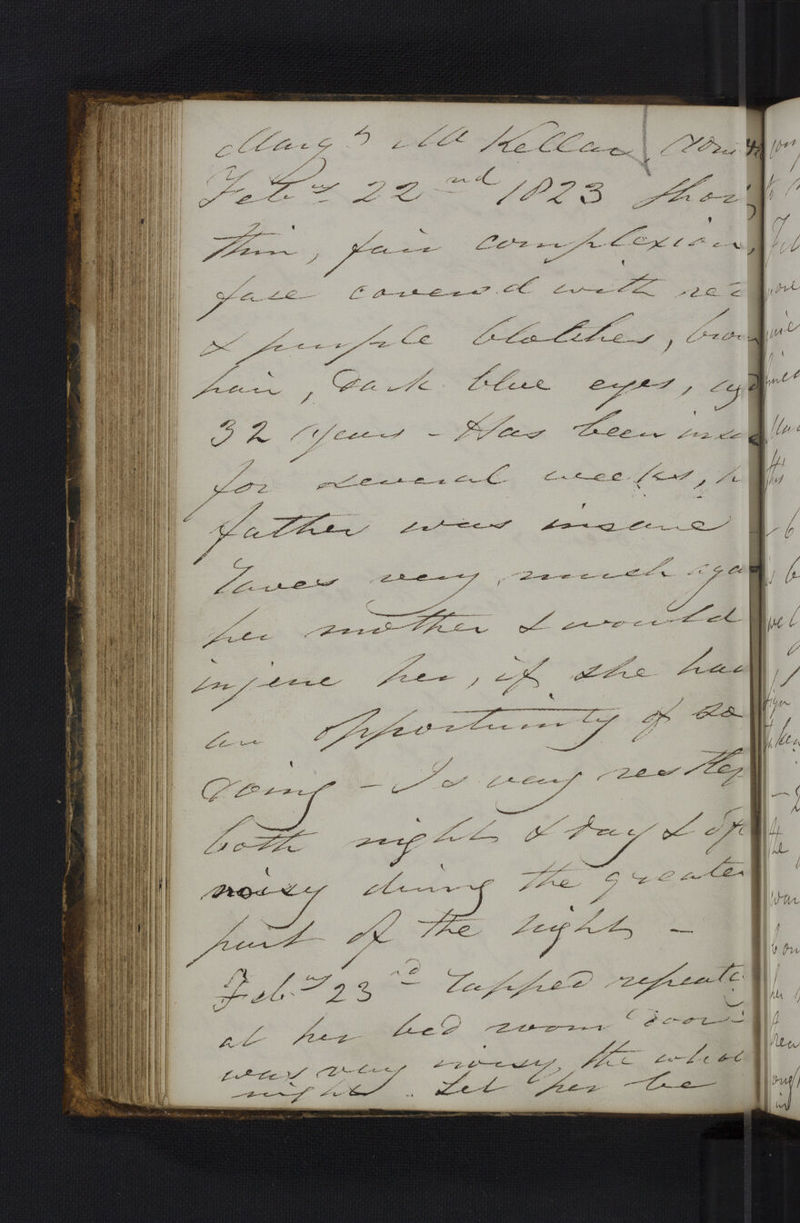 Margt McKellar, Admitted
Feby 22nd 1823 Short
thin, fair complexion,
face covered with red
& purple blotches, brown
hair, dark blue eyes, aged
32 years - Has been insane
for several weeks, h
father was insane
raves very much aga
her mother & would
injure her, if she had
an opportunity of so
doing - Is very restless
both night & day &
noisy during the greater
part of the night -
Feby 23d rapped repeate
at her bed room door
was very noisy the whole
night. Let her be